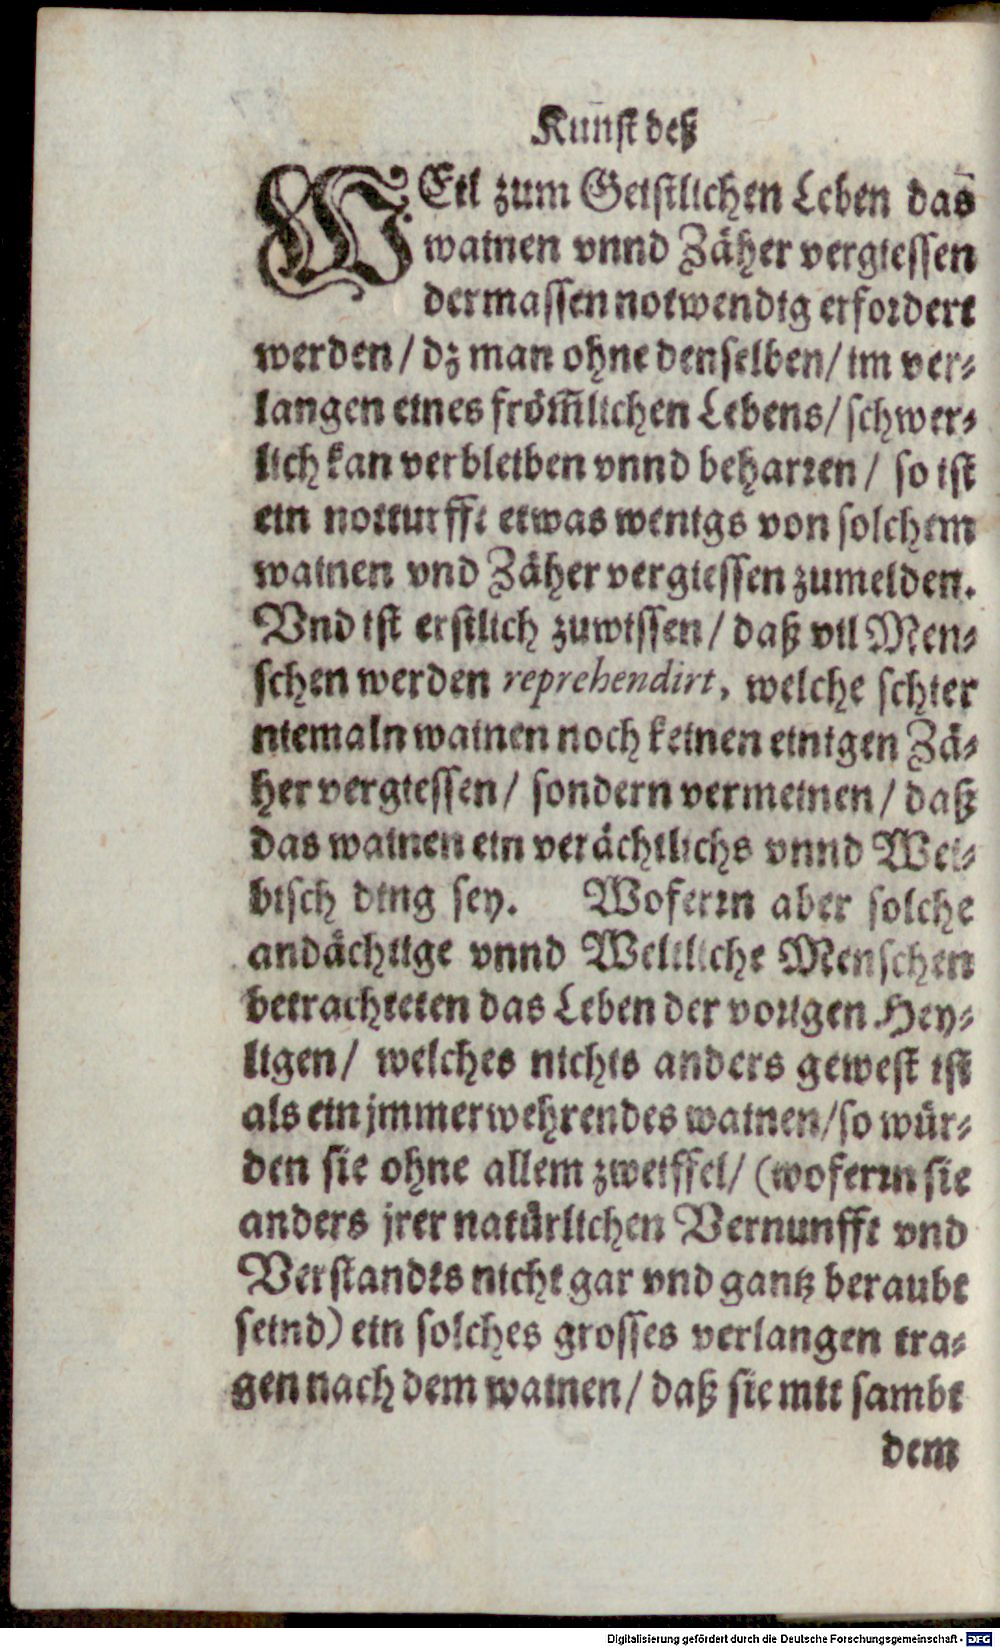 Kunst deß
WEil zum Geistlichen Leben das
wainen vnnd Zäher vergiessen
dermassen notwendig erfordert
werden / dz man ohne denselben / im ver-
langen eines frömlichen Lebens / schwer-
lich kan verbleiben vnnd beharren / so ist
ein notturfft etwas wenigs von solchem
wainen vnd Zäher vergiessen zumelden.
Vnd ist erstlich zuwissen / daß vil Men-
schen werden reprehendirt, welche schier
niemaln wainen noch keinen einigen Zä-
her vergiessen / sondern vermeinen / daß
das wainen ein verächtlichs vnnd Wei-
bisch ding sey. Woferrn aber solche
andächtige vnnd Weltliche Menschen
betrachteten das Leben der vorigen Hey-
ligen / welches nichts anders gewest ist
als ein jmmerwehrendes wainen / so wür-
den sie ohne allem zweiffel / (woferrn sie
anders jrer natürlichen Vernunfft vnd
Verstandts nicht gar vnd gantz beraubt
seind) ein solches grosses verlangen tra-
gen nach dem wainen / daß sie mit sambt
dem
Digitalisierung gefördert durch die Deutsche Forschungsgemeinschaft - DFG